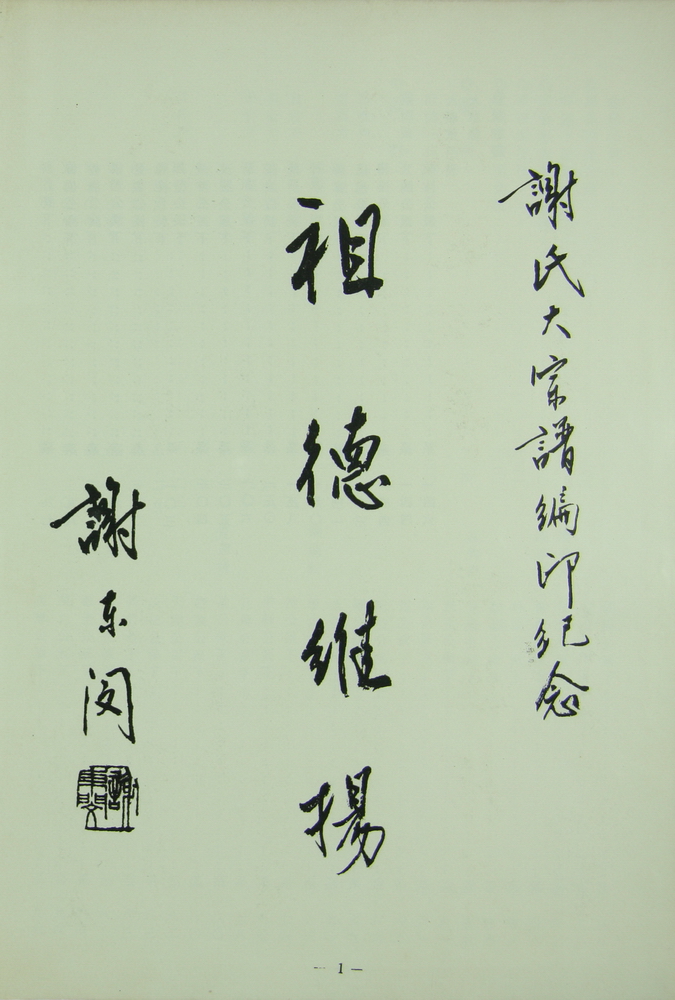 謝氏大宗譜編印紀念
祖德維揚
謝东闵
謝東閔
— 1 —